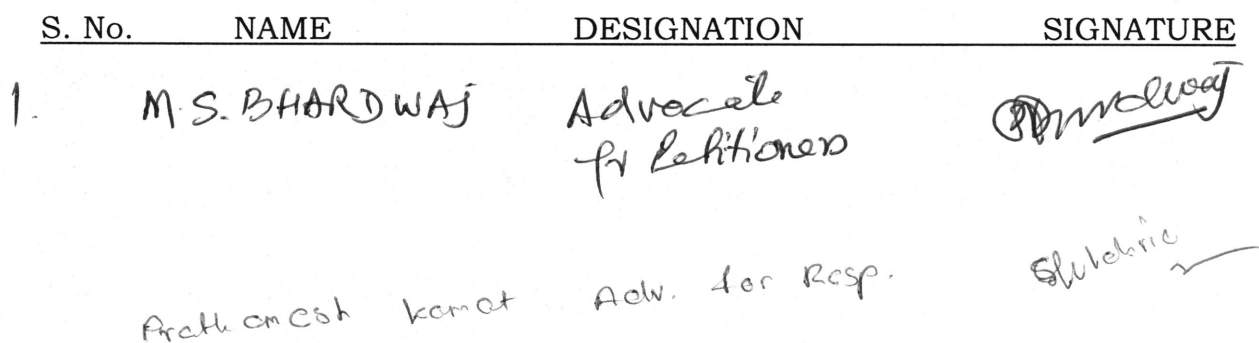 S. No. NAME DESIGNATION SIGNATURE
1. M. S. BHARDWAJ Advocate
for Petitioners
Prathamesh kamat Adv. for Resp.